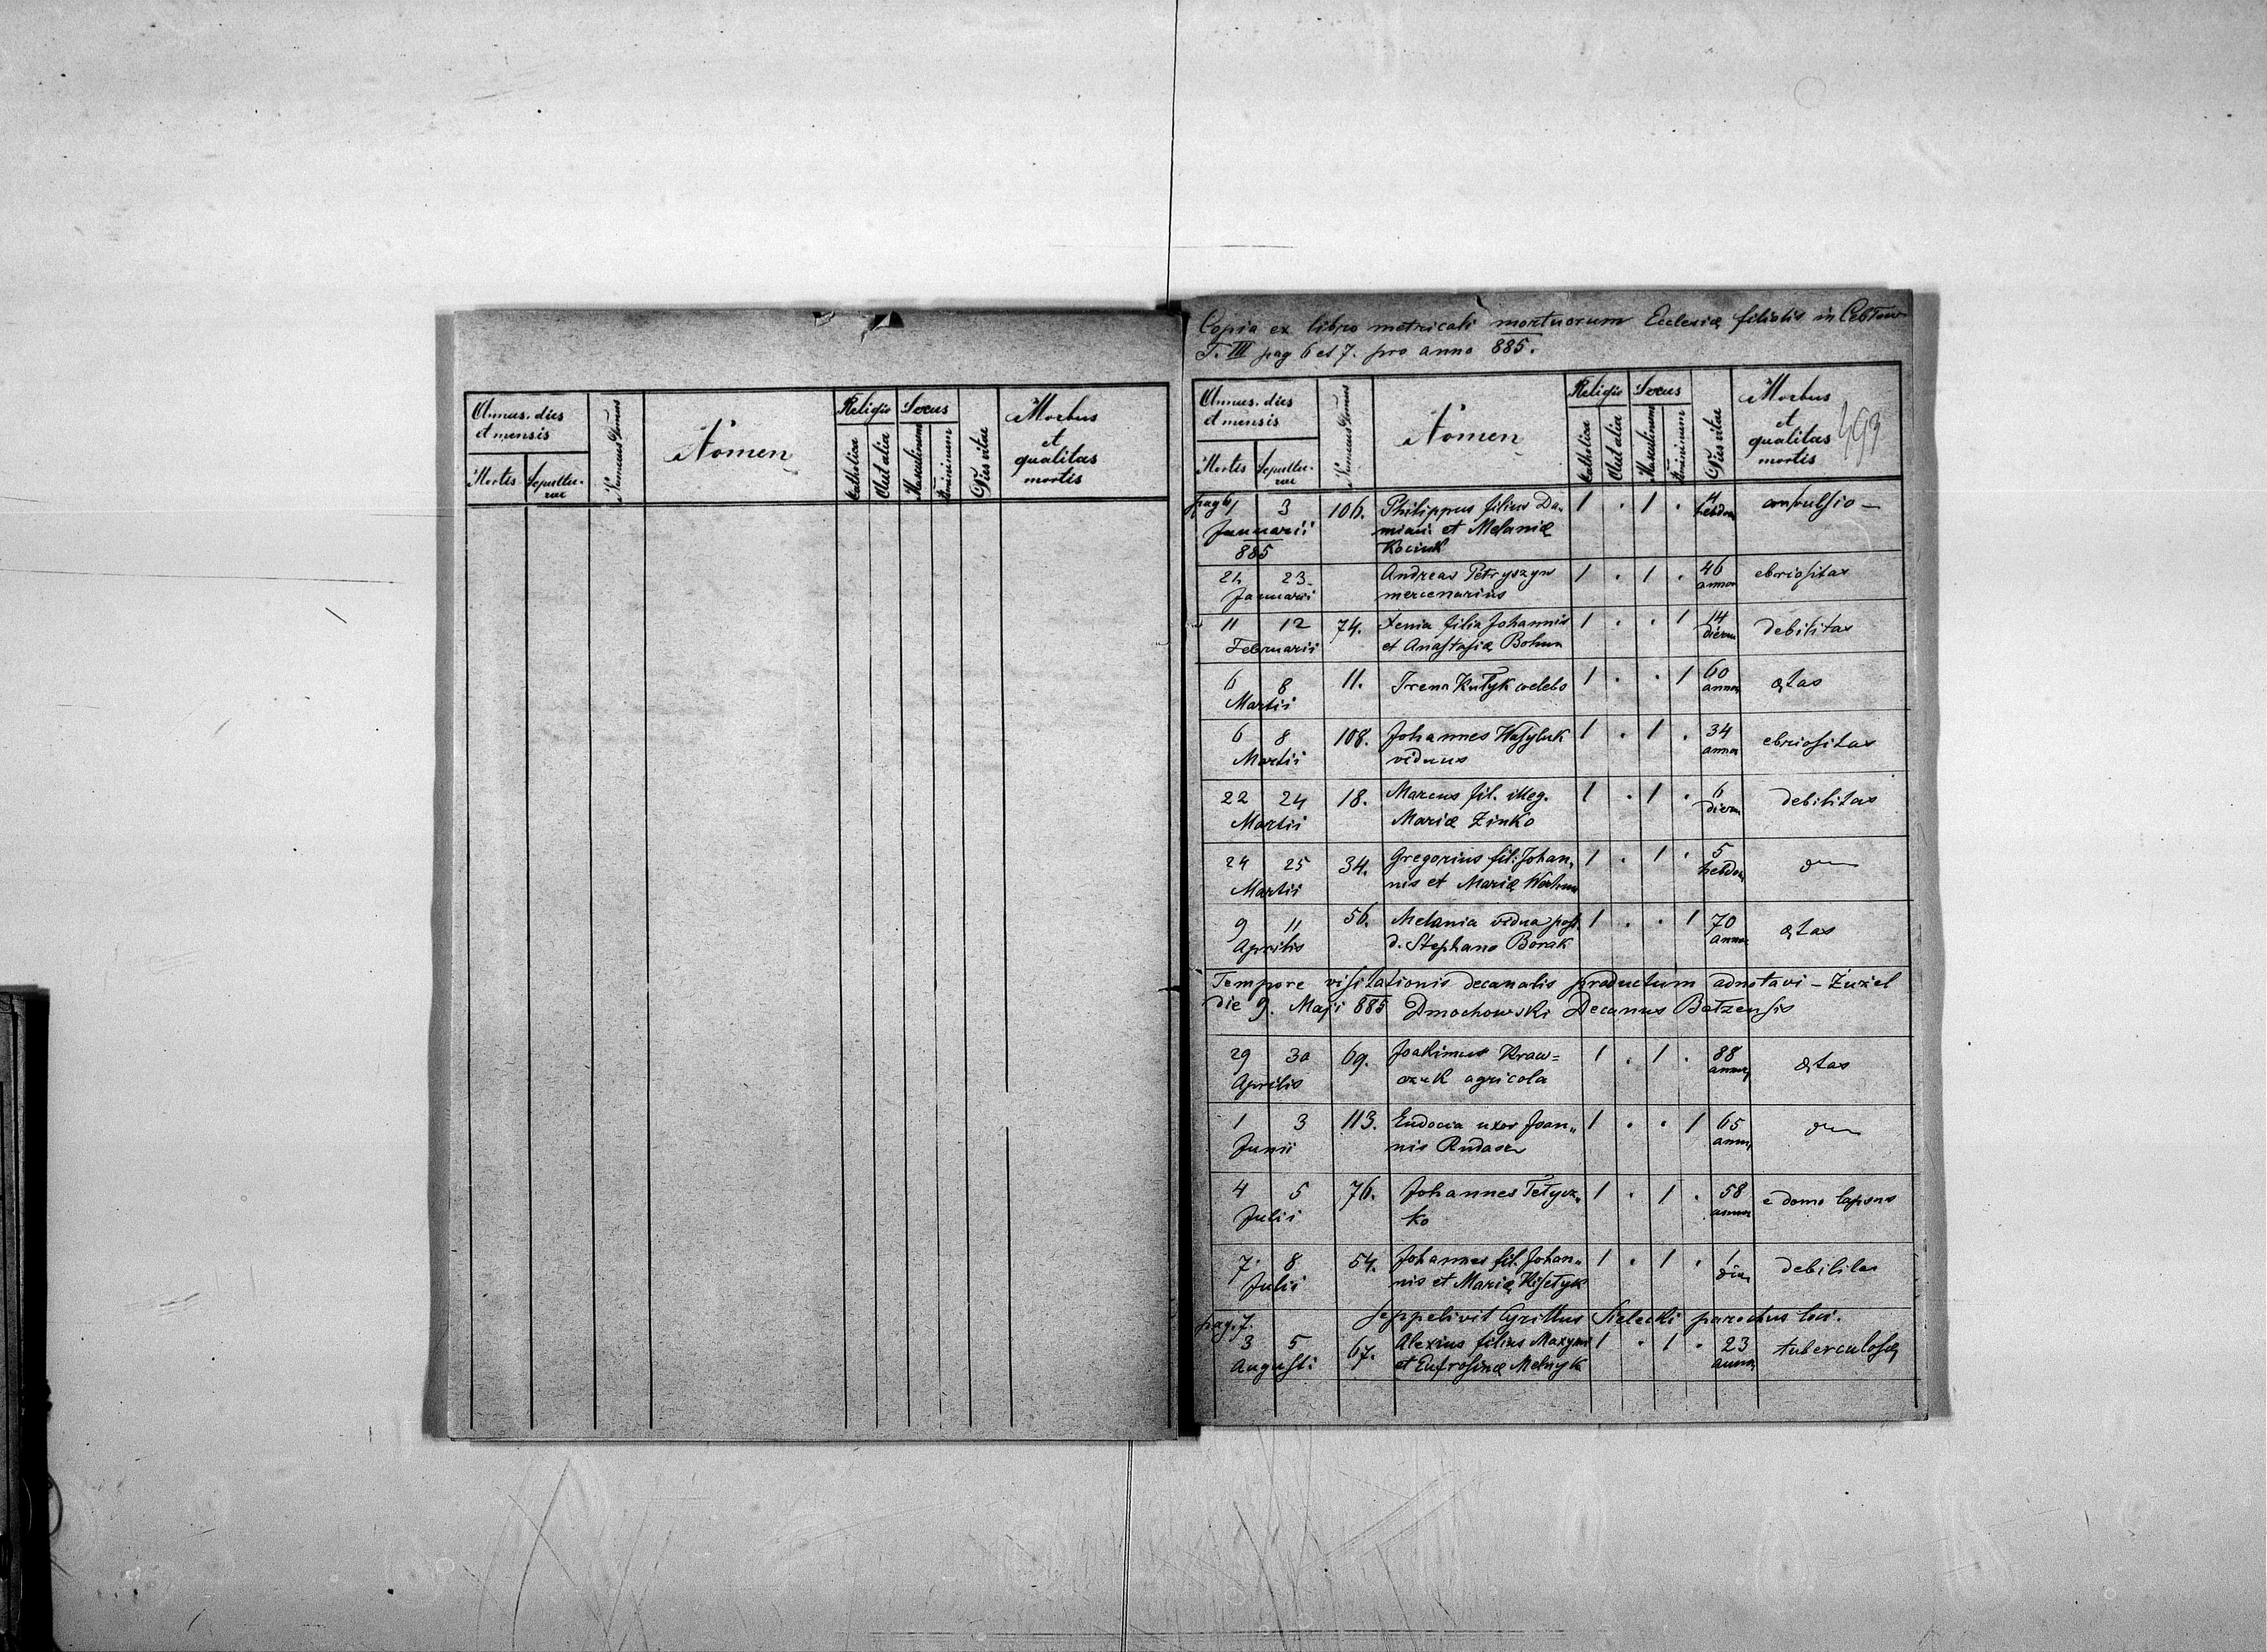 Annus, dies
et mensis
Mortis
Sepultu-
rae
Numerus Domus
Nomen
Religio
Catholica
Aut alia
Sexus
Masculinum
Femininum
Dies vitae
Morbus
et
qualitas
mortis
Copia ex libro metricali mortuorum Ecclesiæ filialis in
T. III pag 6 et 7. pro anno 885.
Annus, dies
et mensis
Mortis
Sepultu-
rae
Numerus Domus
Nomen
Religio
Catholica
Aut alia
Sexus
Masculinum
Femininum
Dies vitae
Morbus
et
qualitas
mortis
pag 6/ 3 106. Philippus filius Da- 1 . 1 . 4 convulsio —
Januarii miani et Melaniæ hebdom
885 Kociuk
21 23 Andreas Petryszyn 1 . 1 . 46 ebriositas
Januarii mercenarius annor
11 12 74. Xenia filia Johannis 1 . . 1 14 debilitas
Februarii et Anastasiæ Bohun dierum
6 8 11. Irena Kułyk celebs 1 . . 1 60 ætas
Martii annor
6 8 108. Johannes Wasyluk 1 . 1 . 34 ebriositas
Martii viduus annor
22 24 18. Marcus fil. illeg. 1 . 1 . 6 debilitas
Martii Mariæ Zinko dierum
24 25 34. Gregorius fil: Johan- 1 . 1 . 5
Martii nis et Mariæ hebdom
9 11 56. Melania vidua post 1 . . 1 70 ætas
Aprilis d. Stephano Borak annor
Tempore visitationis decanalis productum adnotavi — Żużel
die 9. Maji 885 Dmochowski Decanus Bełzensis
29 30 69. Joakimus Kraw= 1 . 1 . 88 ætas
Aprilis czuk agricola annor
1 3 113. Eudocia uxor Joan- 1 . . 1 65
Junii nis annor
4 5 76. Johannes Tełycz- 1 . 1 . 58 e domo lapsus
Julii ko annor
7 8 54. Johannes fil. Johan- 1 . 1 . 1 debilitas
Julii nis et Mariæ Kisełyk die
Seppelivit Cyrillus Sielecki parochus loci.
pag. 7.
3 5 67. Alexius filius Maxymi 1 . 1 . 23 tuberculosæ
Augusti et Eufrosinæ Melnyk annor